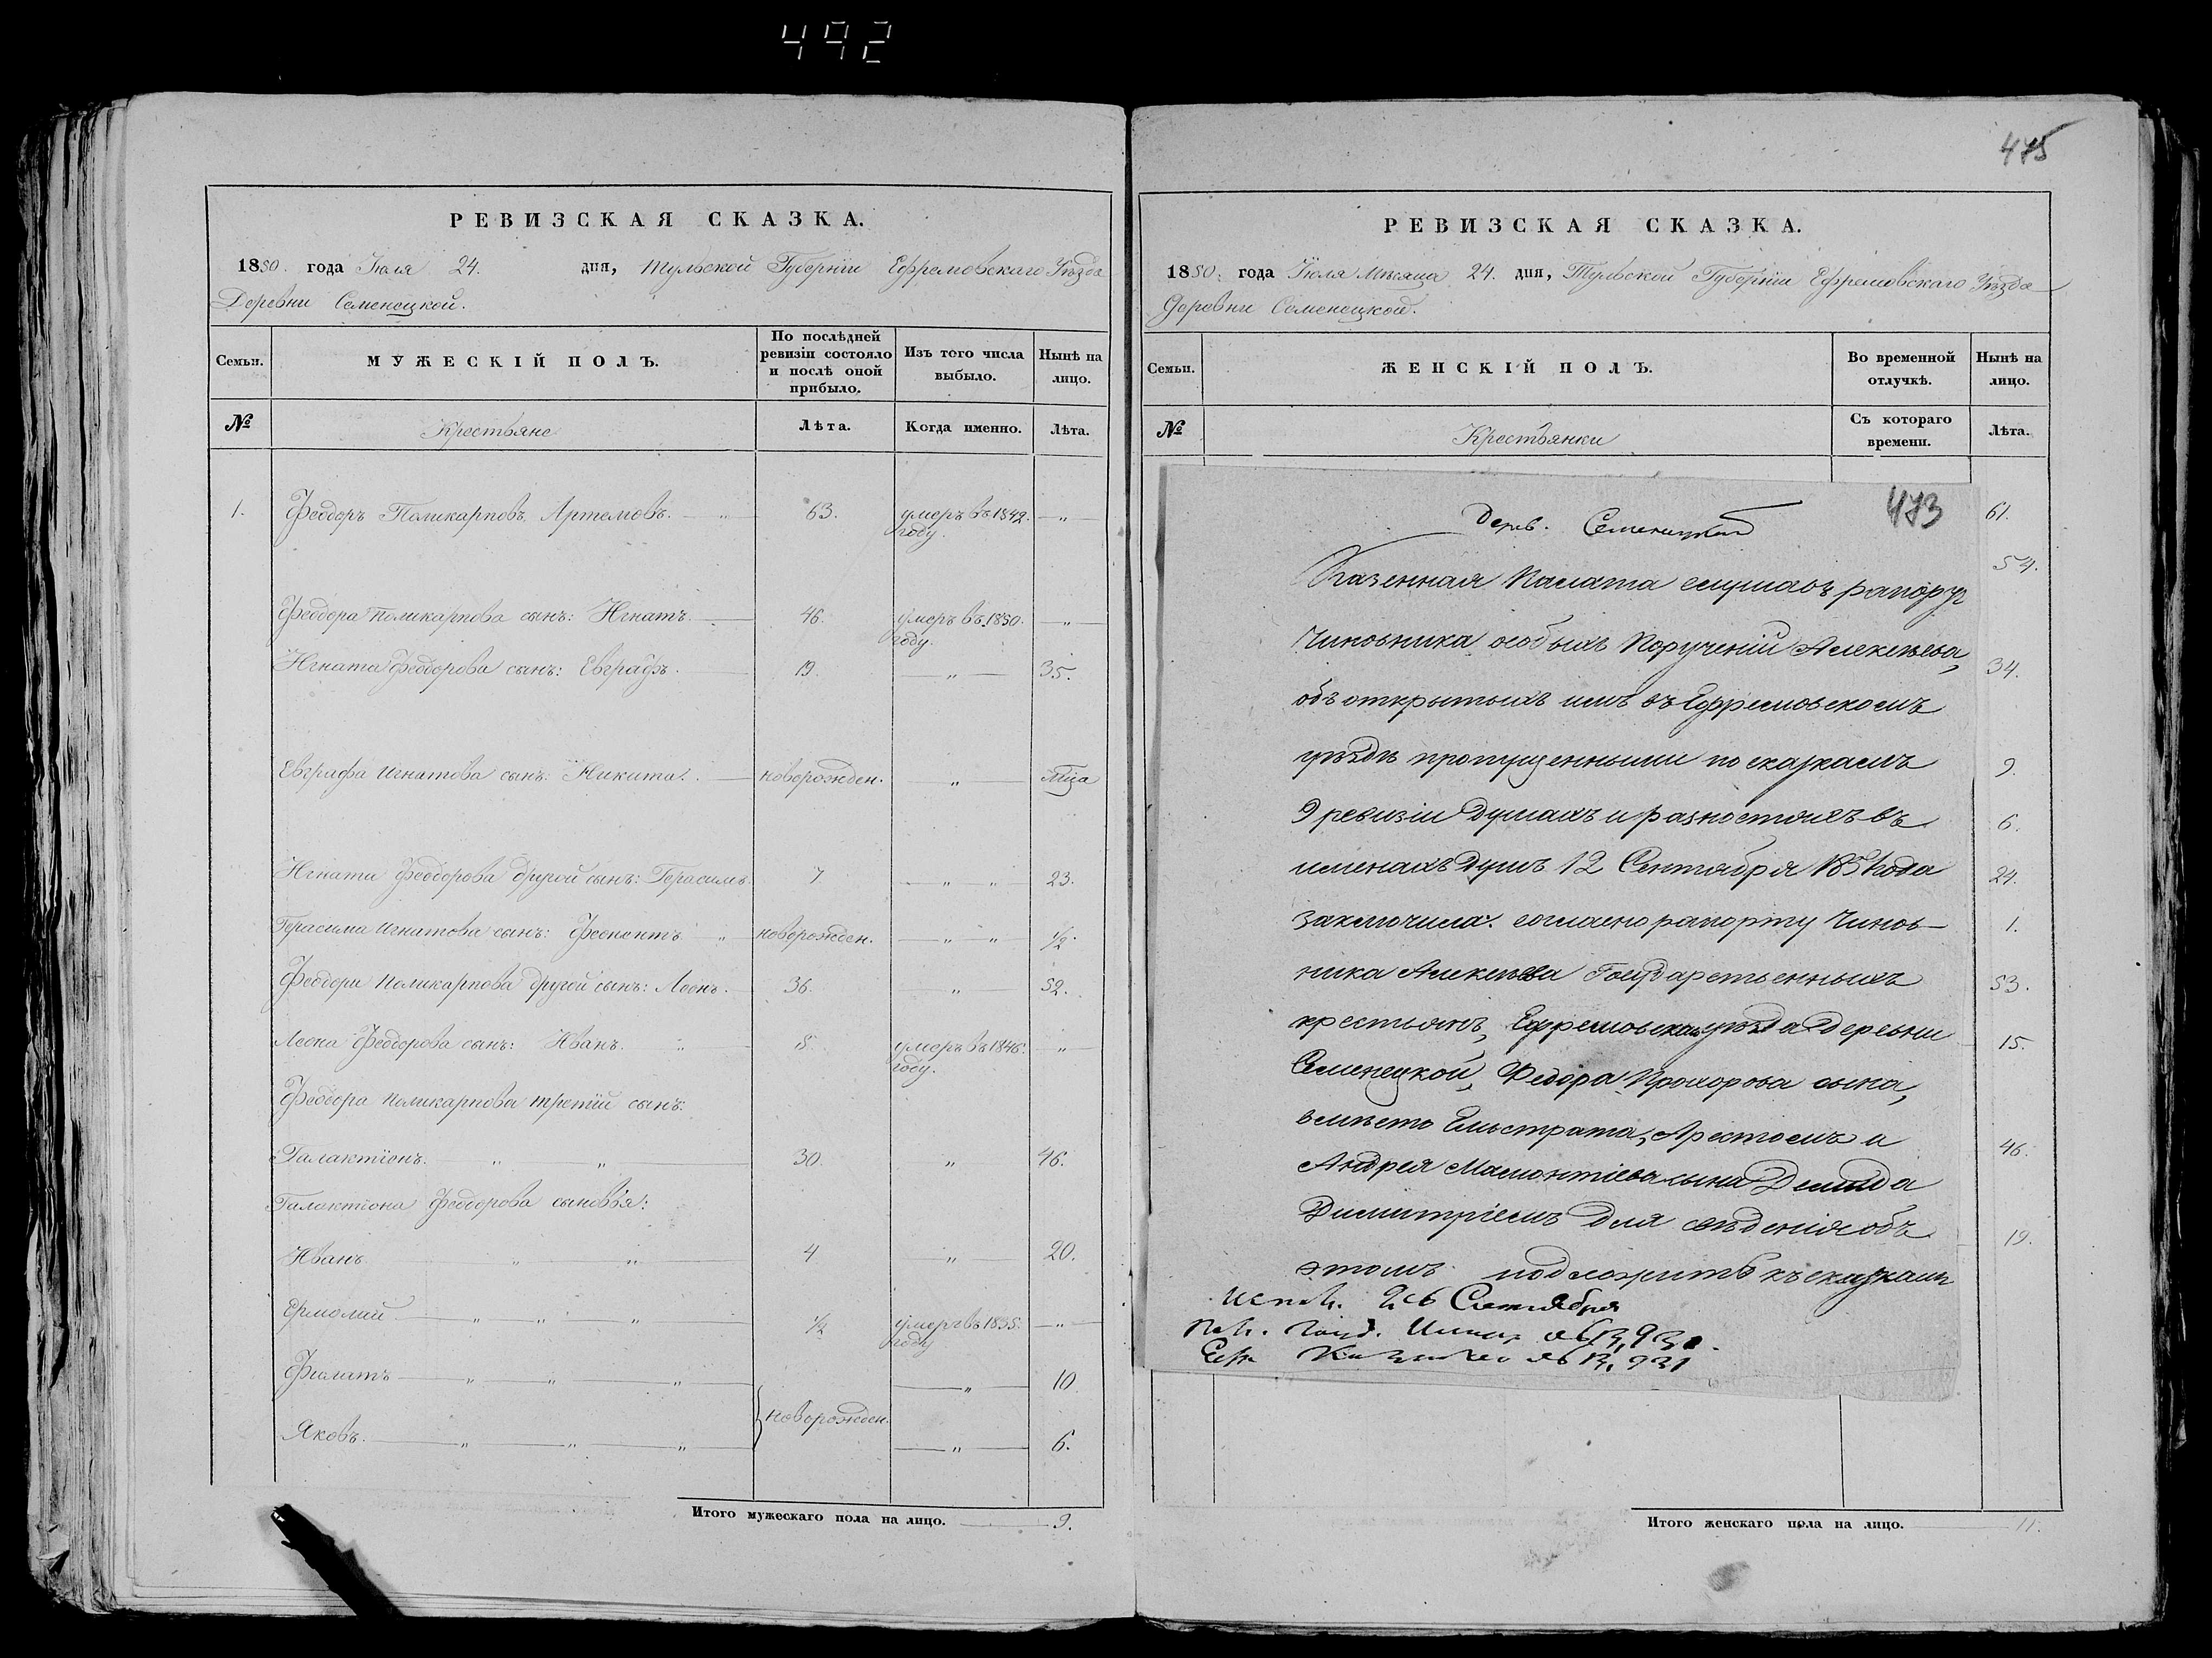 492
РЕВИЗСКАЯ СКАЗКА.
1850. года Іюля 24. дня, Тульской Губерніи Ефремовскаго Уѣзда
Деревни Семенецкой.
Семьи.
МУЖЕСКІЙ ПОЛЪ.
По послѣдней ревизіи состояло и послѣ оной прибыло.
Изъ того числа выбыло.
Нынѣ на лицо.
№
Крестьяне
Лѣта.
Когда именно.
Лѣта.
1. Феодоръ Поликарповъ Артемовъ. 63. умеръ въ 1849. году. "
Феодора Поликарпова сынъ: Игнатъ. 46. умеръ въ 1850. году. "
Игната Феодорова сынъ: Евграфъ. 19. " 35.
Евграфа Игнатова сынъ: Никита. новорожден. " Мца
Игната Феодорова другой сынъ: Герасимъ 7 " " 23.
Герасима Игнатова сынъ: Феопентъ " новорожден. " " 1/2.
Феодора Поликарпова другой сынъ: Леонъ. 36. " 52.
Леона Феодорова сынъ: Иванъ. " 8. умеръ въ 1846. году. "
Феодора Поликарпова третій сынъ:
Галактіонъ. " " 30. " 46.
Галактіона Феодорова сыновья:
Иванъ " " 4 " 20.
Ермолай " " " 1/2 умеръ въ 1835. году "
Филатъ " " " " 10
новорожден.
Яковъ. " " " " 6.
Итого мужескаго пола на лицо. 9.
475
РЕВИЗСКАЯ СКАЗКА.
1850. года Іюля Мѣсяца 24. дня, Тульской Губерніи Ефремовскаго Уѣзда
Деревни Семенецкой.
Семьи.
ЖЕНСКІЙ ПОЛЪ.
Во временной отлучкѣ.
Нынѣ на лицо.
№
Крестьянки
Съ котораго времени.
Лѣта.
473
Дерев. Семеницкой
Казенная Палата слушавъ рапортъ
Чиновника особыхъ Порученій Алексѣева,
объ открытыхъ имъ въ Ефремовскомъ
уѣздѣ пропущенными по сказкамъ
9 ревизіи душахъ и разностяхъ въ
именахъ душъ 12 Сентября 1851 года
заключила: согласно рапорту Чинов-
ника Алексѣева Государственныхъ
крестьянъ, Ефремовскаго уѣзда деревни
Семенецкой, Федора Прохорова сына,
вмѣсто Евстрата, Арестомъ и
Андрея Мамонтіева сына Демида
Димитріемъ для свѣденія объ
этомъ подложить къ сказкамъ
26 Сентября
61.
54.
34.
9.
6.
24.
1.
53.
15.
46.
19.
Итого женскаго пола на лицо. 11.